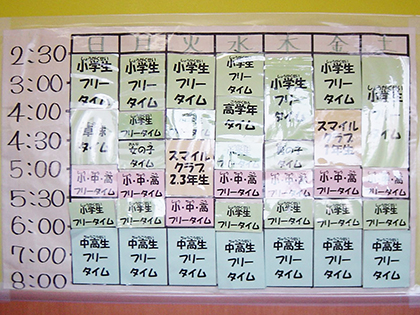 日 月 火 水 木 金 土
2:30
3:00
4:00
4:30
5:00
5:30
6:00
7:00
8:00
小学生
フリー
タイム
卓球
タイム
小・中・高
フリータイム
小学生
フリータイム
中高生
フリー
タイム
小学生
フリー
タイム
小学生
フリータイム
女の子
タイム
小・中・高
フリータイム
小学生
フリータイム
中高生
フリー
タイム
小学生
フリー
タイム
スマイル
クラブ
2.3年生
小・中・高
フリータイム
中高生
フリー
タイム
小学生
フリー
タイム
高学年
タイム
小・中・高
フリータイム
小学生
フリータイム
中高生
フリー
タイム
小学生
フリー
タイム
の子
タイム
小・中・高
フリータイム
小学生
フリータイム
中高生
フリー
タイム
小学生
フリー
タイム
スマイル
クラブ
年生
小・中・高
フリータイム
小学生
フリータイム
中高生
フリー
タイム
小学生
フリー
タイム
小・中・高
フリータイム
小学生
フリータイム
中高生
フリー
タイム